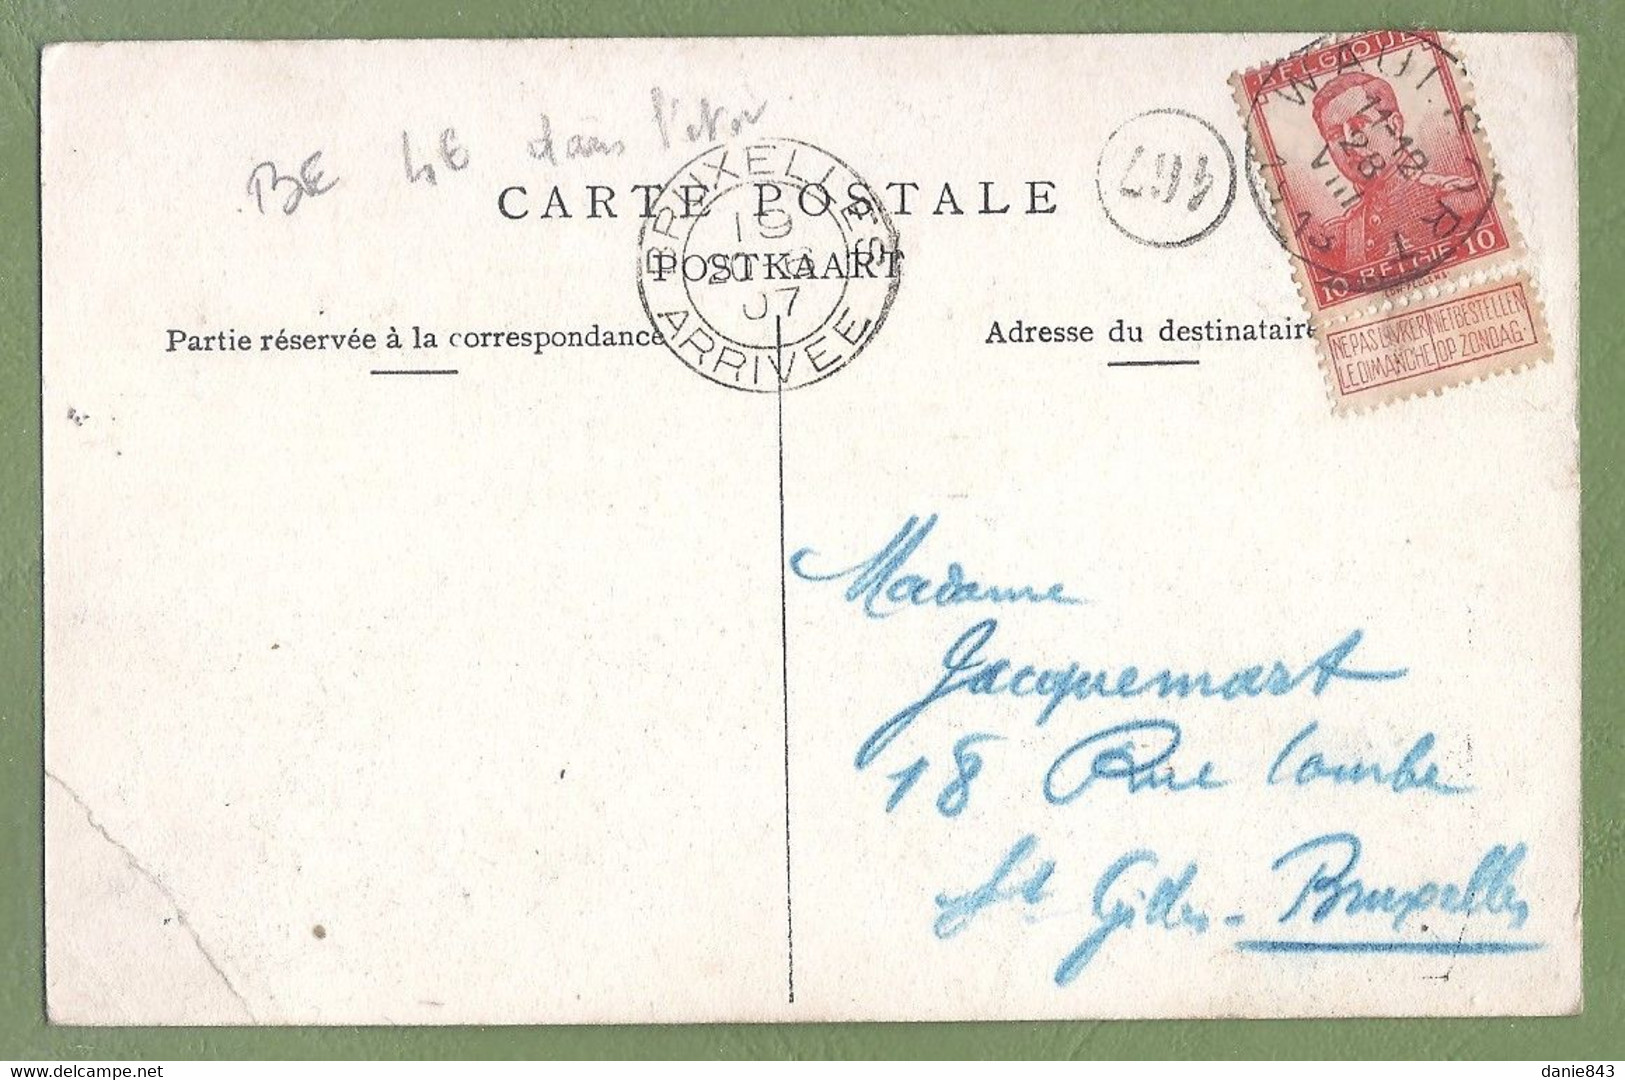 BE 4E dans l'état
CARTE POSTALE
POSTKAART
BRUXELLES
19
07
ARRIVEE
Partie réservée à la correspondance
Adresse du destinataire
BELGIQUE
11-12
28
VIII
10 BELGIË 10
NE PAS LIVRER LE DIMANCHE
NIET BESTELLEN OP ZONDAG
Madame
Jacquemart
18 Rue Combe
St Gilles - Bruxelles
danie843